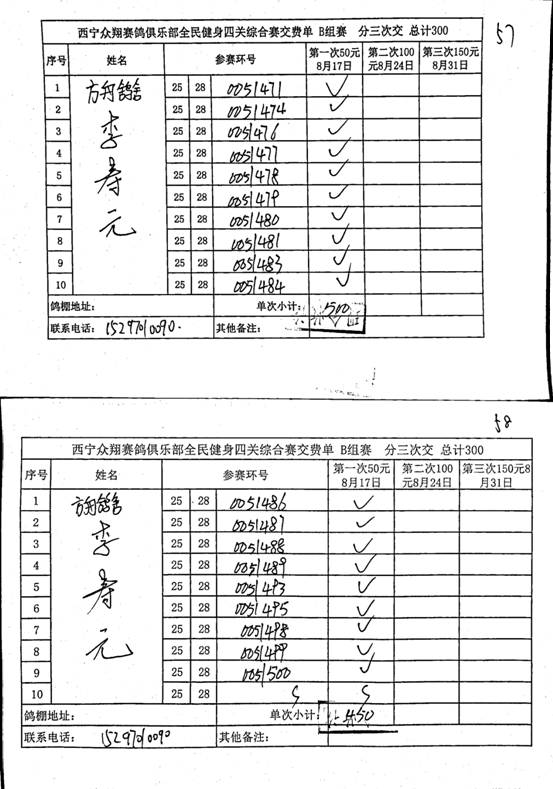 57
西宁众翔赛鸽俱乐部全民健身四关综合赛交费单 B组赛 分三次交 总计300
序号 姓名 参赛环号 第一次50元8月17日 第二次100元8月24日 第三次150元8月31日
1 方舟鸽舍 25 28 0051471 ✓
2 李寿元 25 28 0051474 ✓
3 25 28 0051476 ✓
4 25 28 0051477 ✓
5 25 28 0051478 ✓
6 25 28 0051479 ✓
7 25 28 0051480 ✓
8 25 28 0051481 ✓
9 25 28 0051483 ✓
10 25 28 0051484 ✓
鸽棚地址： 单次小计： 500
联系电话： 15297010090. 其他备注：
58
西宁众翔赛鸽俱乐部全民健身四关综合赛交费单 B组赛 分三次交 总计300
序号 姓名 参赛环号 第一次50元8月17日 第二次100元8月24日 第三次150元8月31日
1 方舟鸽舍 25 28 0051486 ✓
2 李寿元 25 28 0051487 ✓
3 25 28 0051488 ✓
4 25 28 0051489 ✓
5 25 28 0051493 ✓
6 25 28 0051495 ✓
7 25 28 0051498 ✓
8 25 28 0051499 ✓
9 25 28 0051500 ✓
10 25 28
鸽棚地址： 单次小计： 450
联系电话： 15297010090 其他备注：